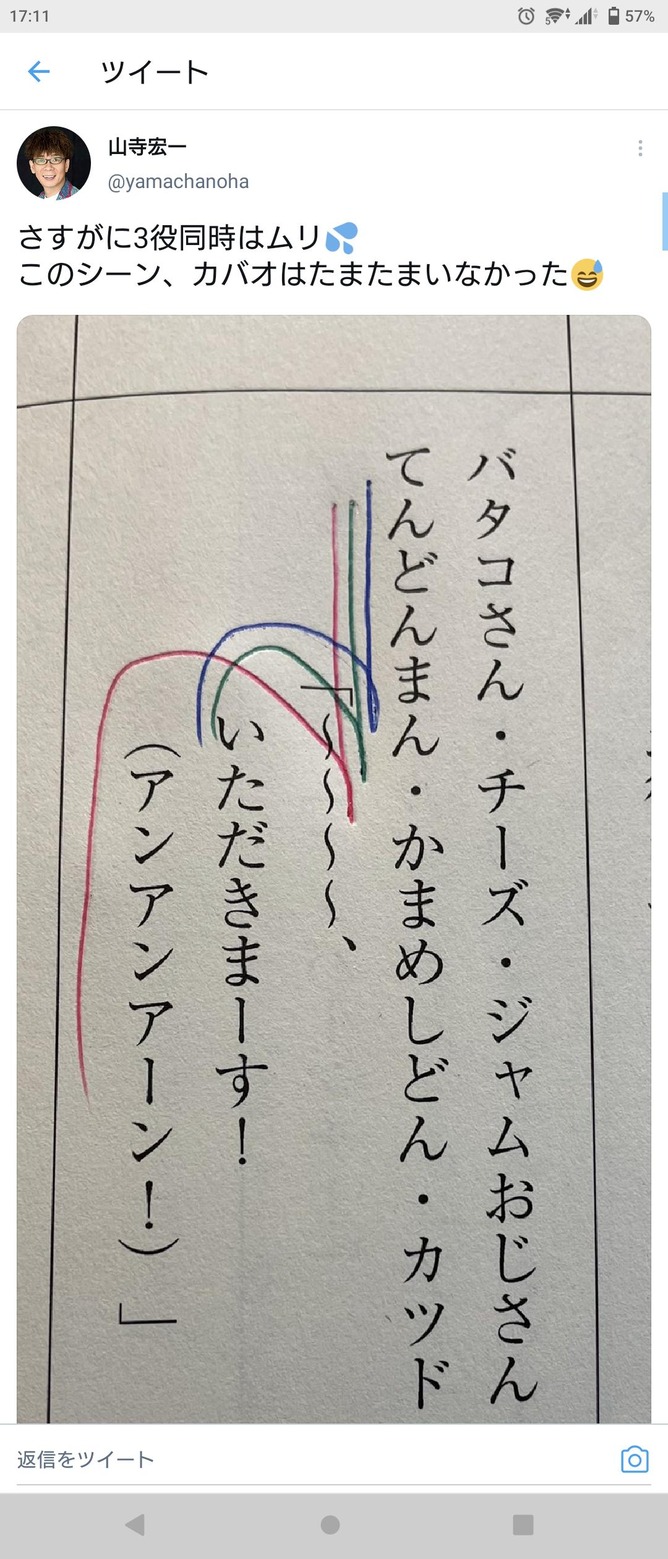 17:11
57%
ツイート
山寺宏一
@yamachanoha
さすがに3役同時はムリ💦
このシーン、カバオはたまたまいなかった😅
バタコさん・チーズ・ジャムおじさん
てんどんまん・かまめしどん・カツド
「～～～～、
いただきまーす！
（アンアンアンアーン！）」
返信をツイート